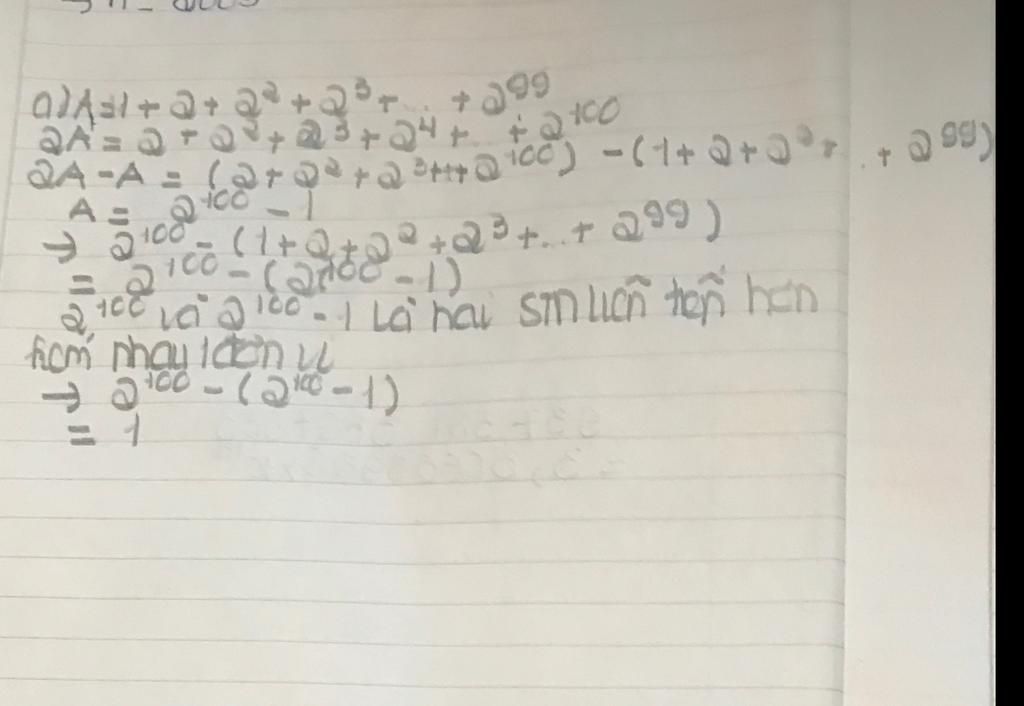 a) A = 1 + 2 + 2² + 2³ + ... + 2⁹⁹
2A = 2 + 2² + 2³ + 2⁴ + ... + 2¹⁰⁰
2A - A = (2 + 2² + 2³ +++ 2¹⁰⁰) - (1 + 2 + 2² + ... + 2⁹⁹)
A = 2¹⁰⁰ - 1
→ 2¹⁰⁰ - (1 + 2 + 2² + 2³ + ... + 2⁹⁹)
= 2¹⁰⁰ - (2¹⁰⁰ - 1)
2¹⁰⁰ và 2¹⁰⁰ - 1 là hai hơn
nhau 1
→ 2¹⁰⁰ - (2¹⁰⁰ - 1)
= 1